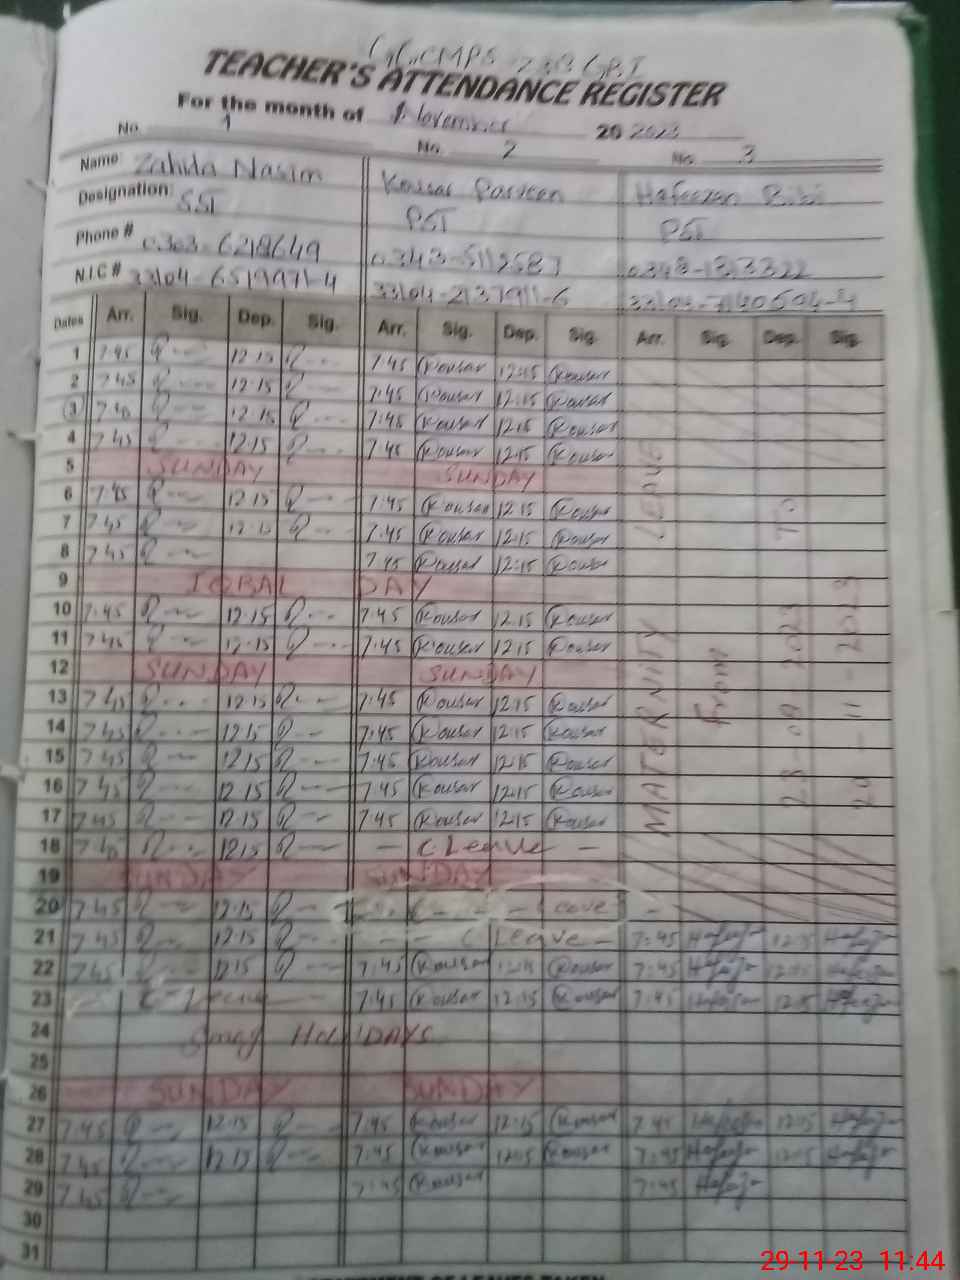 GGCMPS 238 GBI
TEACHER'S ATTENDANCE REGISTER
For the month of November 20 2023
No. 1 No. 2 No. 3
Name: Zahida Nasim Kousar Parveen Hafeezan Bibi
Designation: SST PST PST
Phone # 0303-6218649 0343-5112587 0348-1313322
N.I.C # 33104-6519971-4 33104-2137911-6
Dates Arr. Sig. Dep. Sig. Arr. Sig. Dep. Sig. Arr. Sig. Dep. Sig.
1 7.45 12.15 7.45 Kousar 12:15 Kousar
2 7.45 12.15 7.45 Kousar 12:15 Kousar
3 7.40 12.15 7.45 Kousar 12:15 Kousar
4 7.45 12.15 7.45 Kousar 12:15 Kousar
5 SUNDAY SUNDAY
6 7.45 12.15 7.45 Kousar 12.15 Kousar
7 7.45 12.15 7.45 Kousar 12.15 Kousar
8 7.45 7.45 Kousar 12:15 Kousar
9 IQBAL DAY
10 7.45 12.15 7.45 Kousar 12.15 Kousar
11 7.45 12.15 7.45 Kousar 12.15 Kousar
12 SUNDAY SUNDAY
13 7.45 12.15 7.45 Kousar 12.15 Kousar
14 7.45 12.15 7.45 Kousar 12.15 Kousar
15 7.45 12.15 7.45 Kousar 12.15 Kousar
16 7.45 12.15 7.45 Kousar 12.15 Kousar
17 7.45 12.15 7.45 Kousar 12.15 Kousar
18 7.40 12.15 - C Leave -
MATERNITY LEAVE
From
25 08 2023 TO
20 - 11 - 2023
19 SUNDAY SUNDAY
20 7.45 12.15
21 7.45 12.15 C Leave - 7:45 12:15
22 7.45 12.15 7.45 Kousar 12.15 Kousar 7:45 12:15
23 C-Leave 7.45 Kousar 12.15 Kousar 7:45 12:15
24 Smog HoliDAYS
25
26 SUNDAY SUNDAY
27 7.45 12.15 7.45 Kousar 12.15 Kousar 7:45 12:15
28 7.45 12.15 7.45 Kousar 12.15 Kousar 7:45 12:15
29 7.45 7.45 Kousar 7:45
30
31
29-11-23 11:44